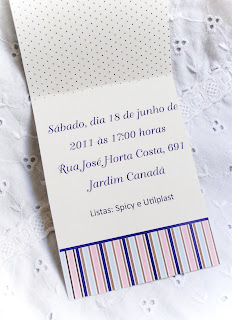 Sábado, dia 18 de junho de
2011 às 17:00 horas
Rua José Horta Costa, 691
Jardim Canadá
Listas: Spicy e Utilplast